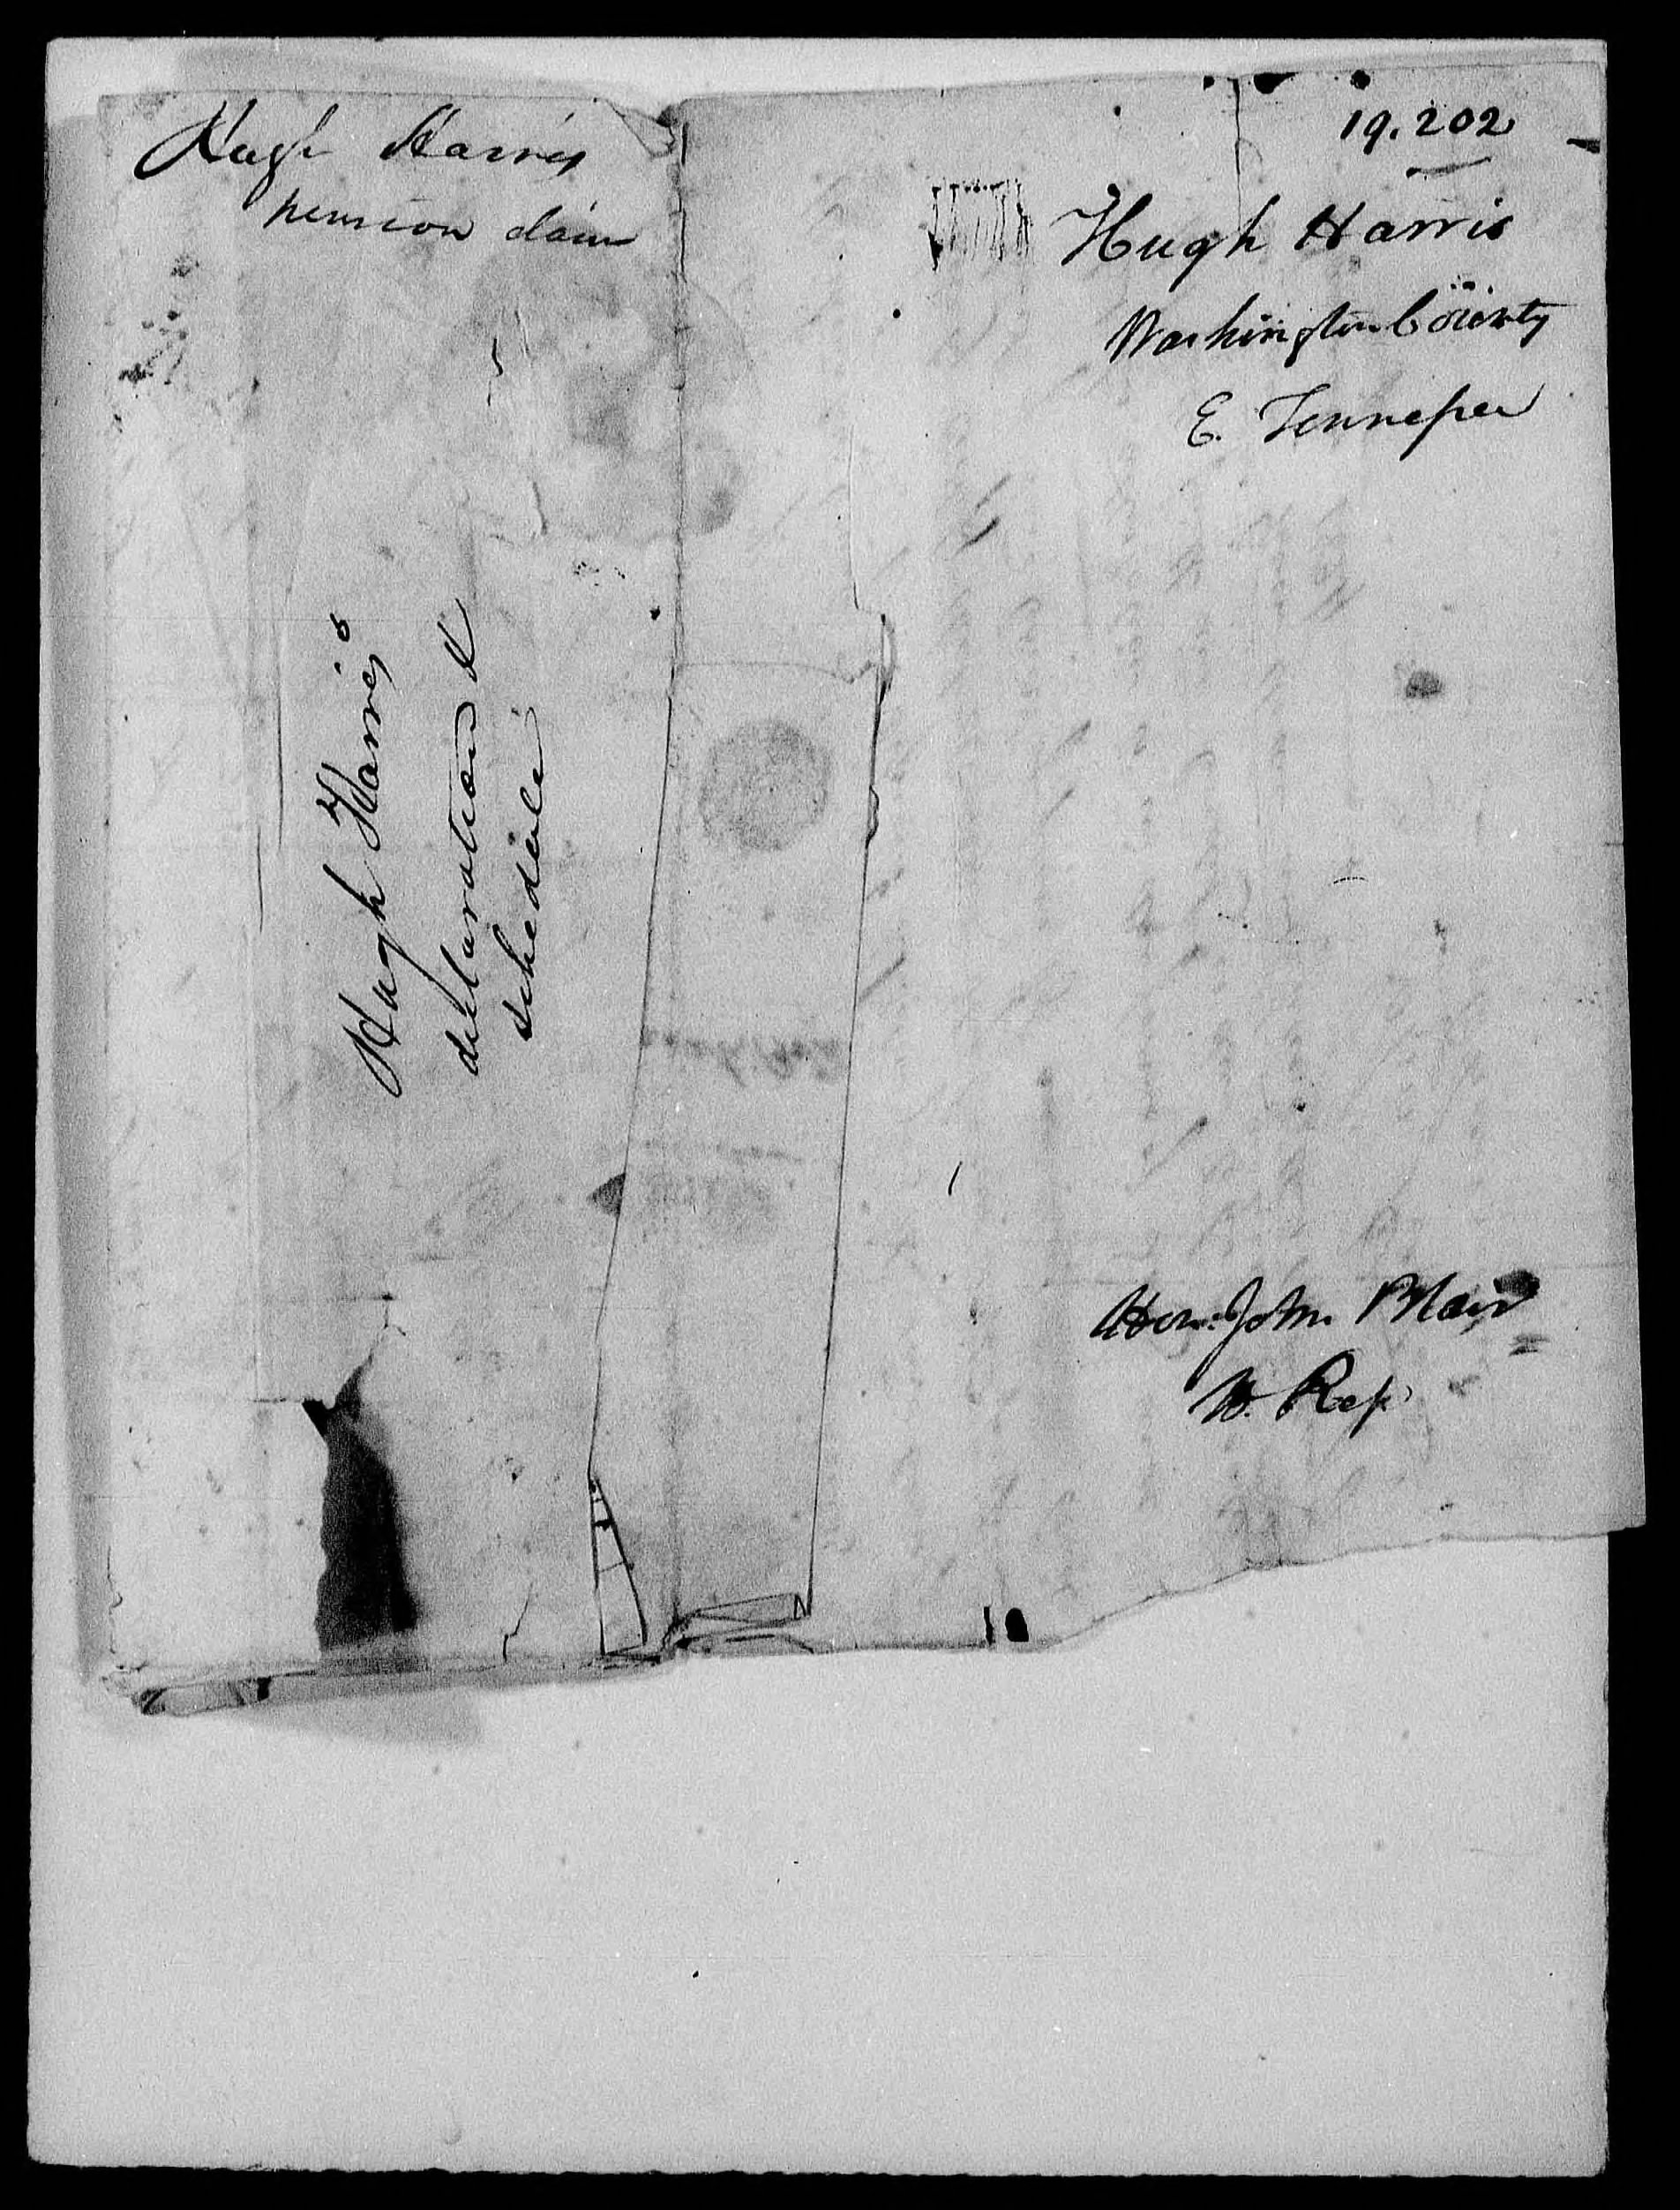 Hugh Harris
pension claim
19.202
Hugh Harris
Washington County
E. Tennessee
Hugh Harris's
declaration &
schedule
Hon: John Blair
H. Rep.